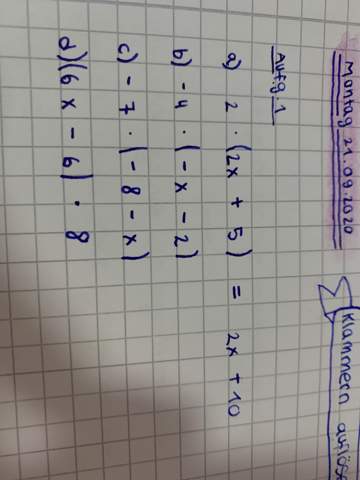 Montag 21.09.2020
Klammern auflös
Aufg.1
a) 2 · (2x + 5) = 2x + 10
b) -4 · (-x - 2)
c) -7 · (-8 - x)
d) (6x - 6) · 8